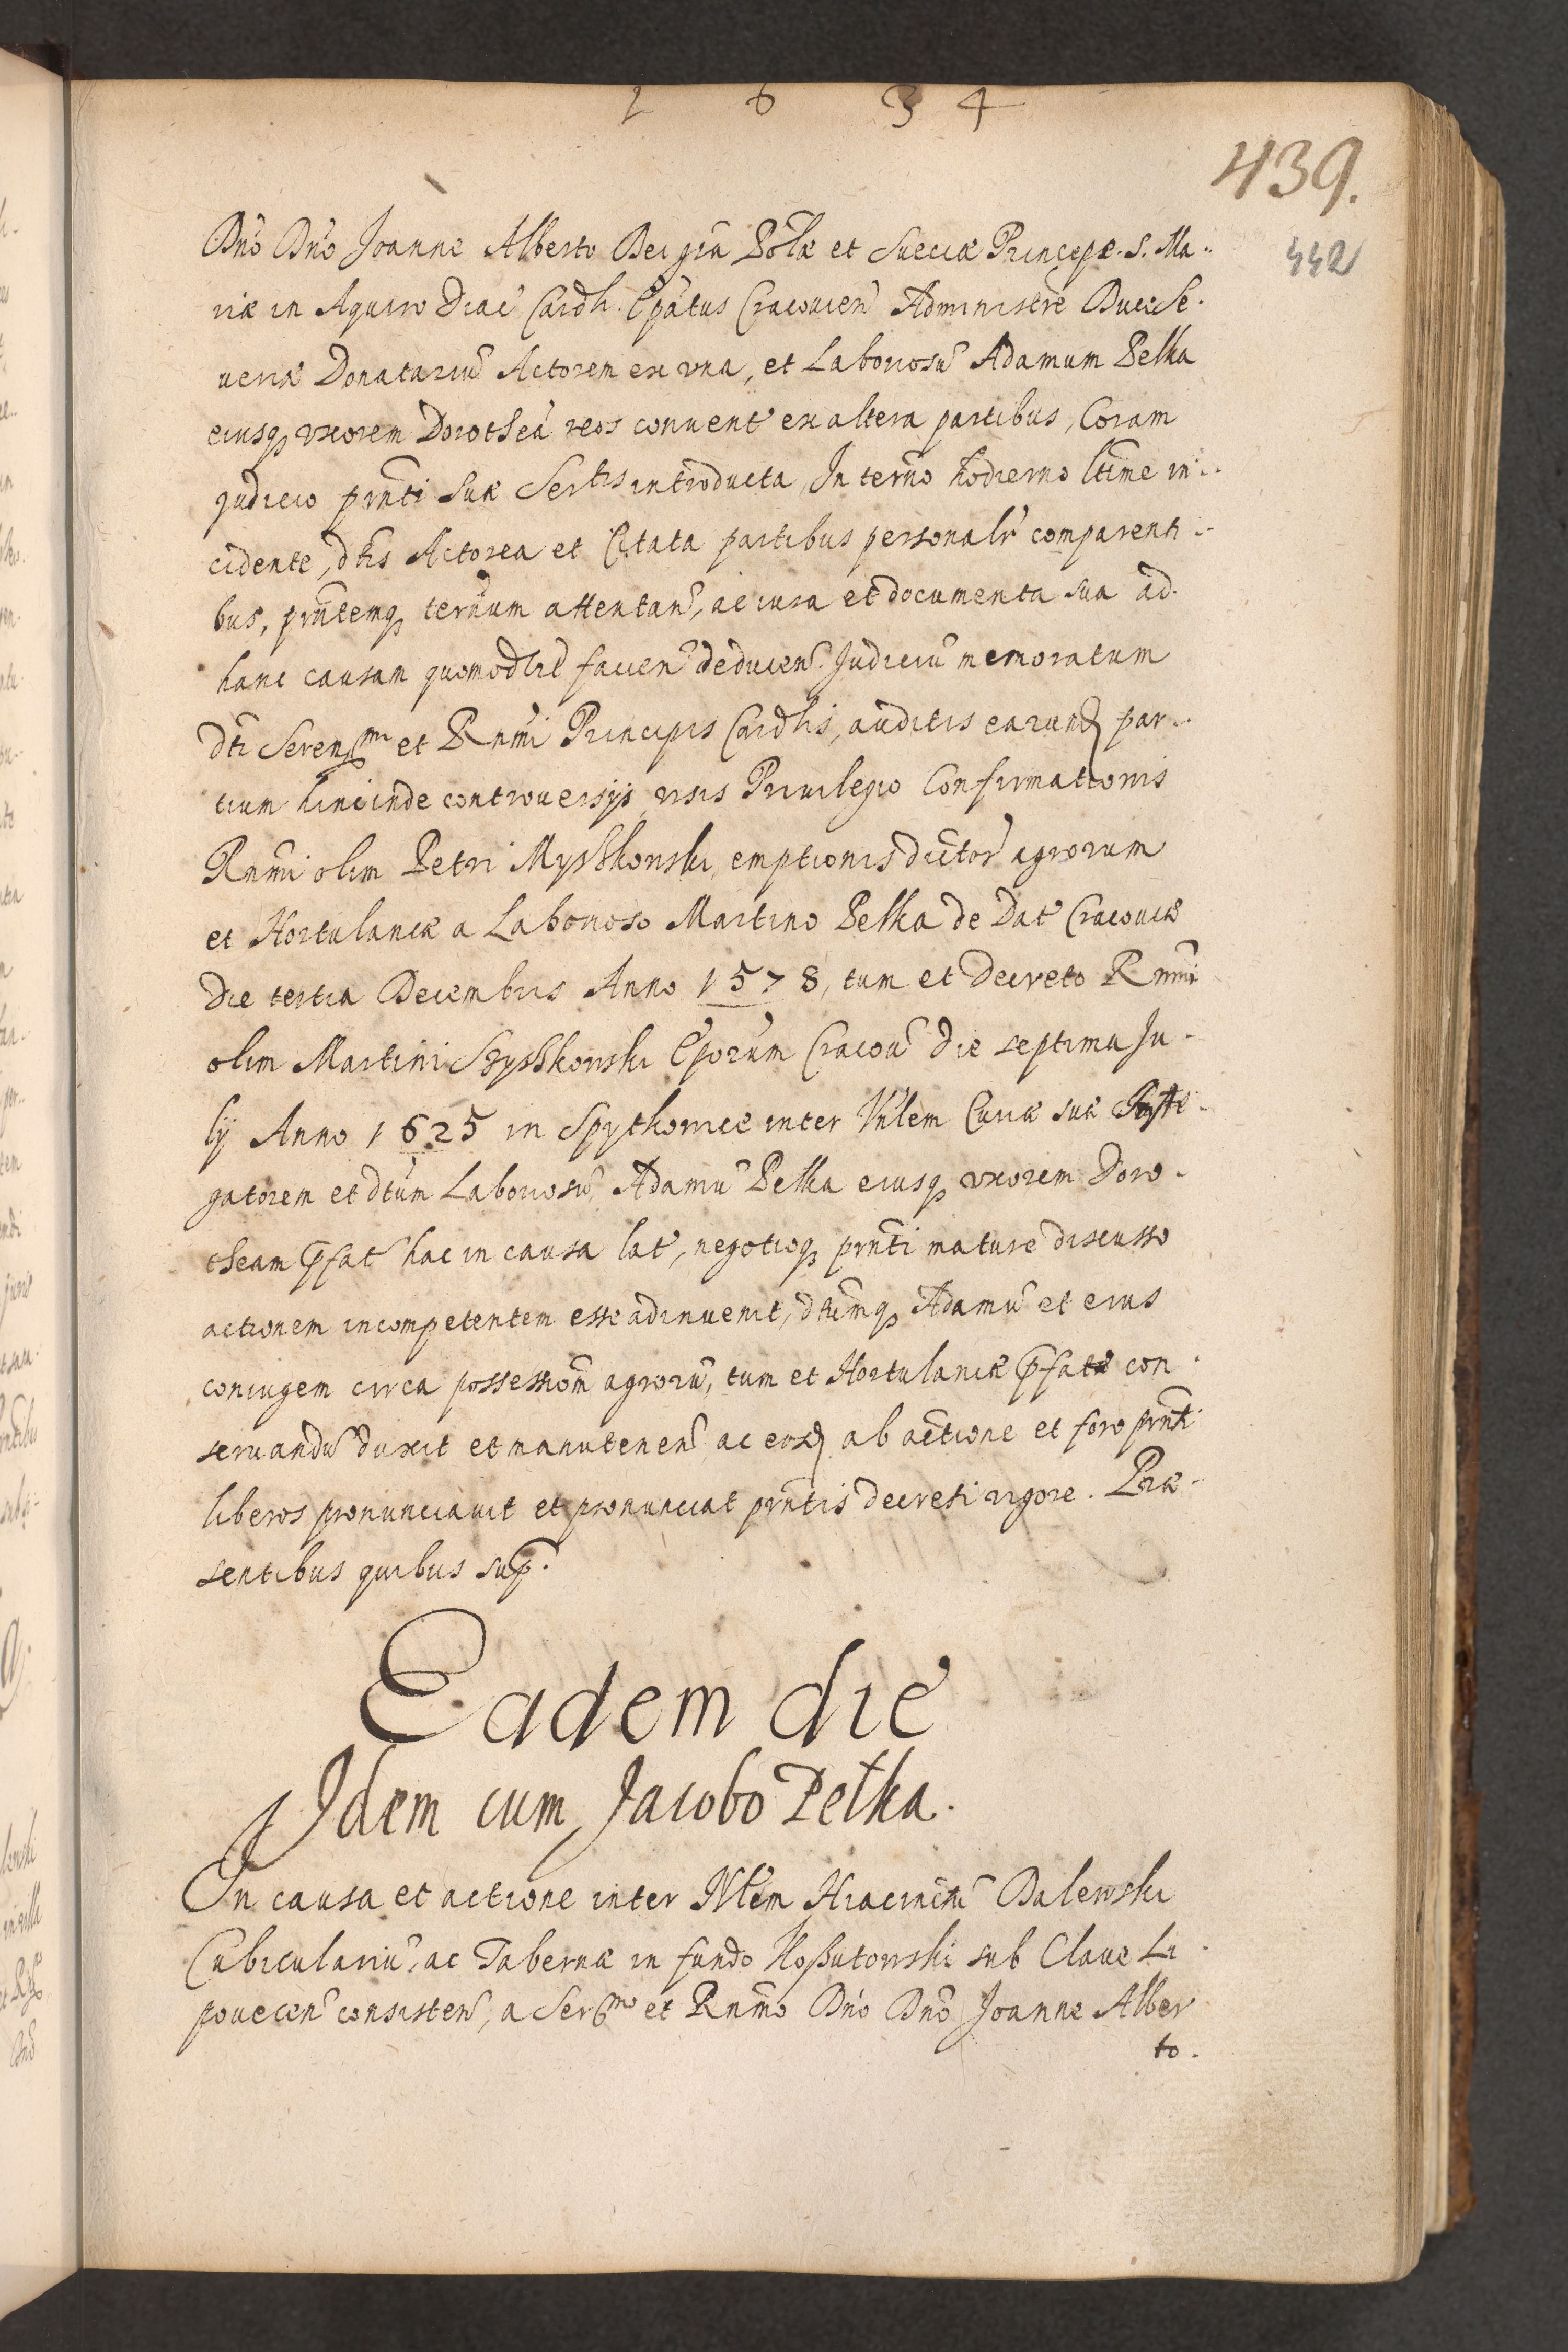 1 6 3 4
439.
442
Dn̄o Dn̄o Joanne Alberto Dei gr̄a Pol̄æ et Sueciæ Principe. S. Ma-
riæ in Aquiro Diac̄ Cardl̄i. Ep̄atus Cracovien̄ Administr̄e Ducæ Se-
veriæ Donatariū Actorem ex una, et Laboriosū Adamum Petka
eiusq̨ uxorem Dorotheā reos convent̄ ex altera partibus, Coram
judicio pn̄ti suæ Sertis introducta, In term̄o hodierno ltīme in-
cidente, dt̄is Actorea et Citata partibus personalr̄ comparenti-
bus, pn̄temq̨ term̄um attentan̄, ac iura et documenta sua ad
hanc causam quomodl̄ib̄ facien̄ deducen̄. Judiciū memoratum
dt̄i Serenssmi et Rn̄mi Principis Cardl̄is, auditis earund̄ par-
tium hincinde controversijs, visis Privilegio Confirmationis
Rn̄mi olim Petri Mysskowski, emptionis dictor̄ agrorum
et Hortulaniæ a Laborioso Martino Petka de Dat̄ Cracoviæ
Die tertia Decembris Anno 1578, tum et decreto Rn̄mi
olim Martini Szysskowski Ep̄orum Cracov̄ die septima Ju-
lij Anno 1625 in Spytkowice inter Vn̄lem Curiæ suæ Insti-
gatorem et dt̄um Laboriosū Adamū Petka eiusq̨ uxorem Doro-
theam p̄fat̄ hac in causa lat̄, negotioq̨ pn̄ti mature discusso
actionem incompetentem esse adinvenit, dt̄umq̨ Adamū et eius
coniugem circa possession̄ agrorū, tum et Hortulaniæ p̄fatæ con-
servandū duxit et manutenen̄ ac eosd̄ ab actione et foro pn̄ti
liberos pronunciavit et pronunciat pn̄tis decreti vigore. Præ-
sentibus quibus sup̄.
Eadem die
Idem cum Jacobo Petka.
In causa et actione inter Nl̄em Hiacinctū Dalewski
Cubiculariū, ac Tabernæ in fundo Koßutowski sub Clave Li-
povecen̄ consisten̄, a Serssmo et Rn̄mo Dn̄o Dn̄o Joanne Alber
to.